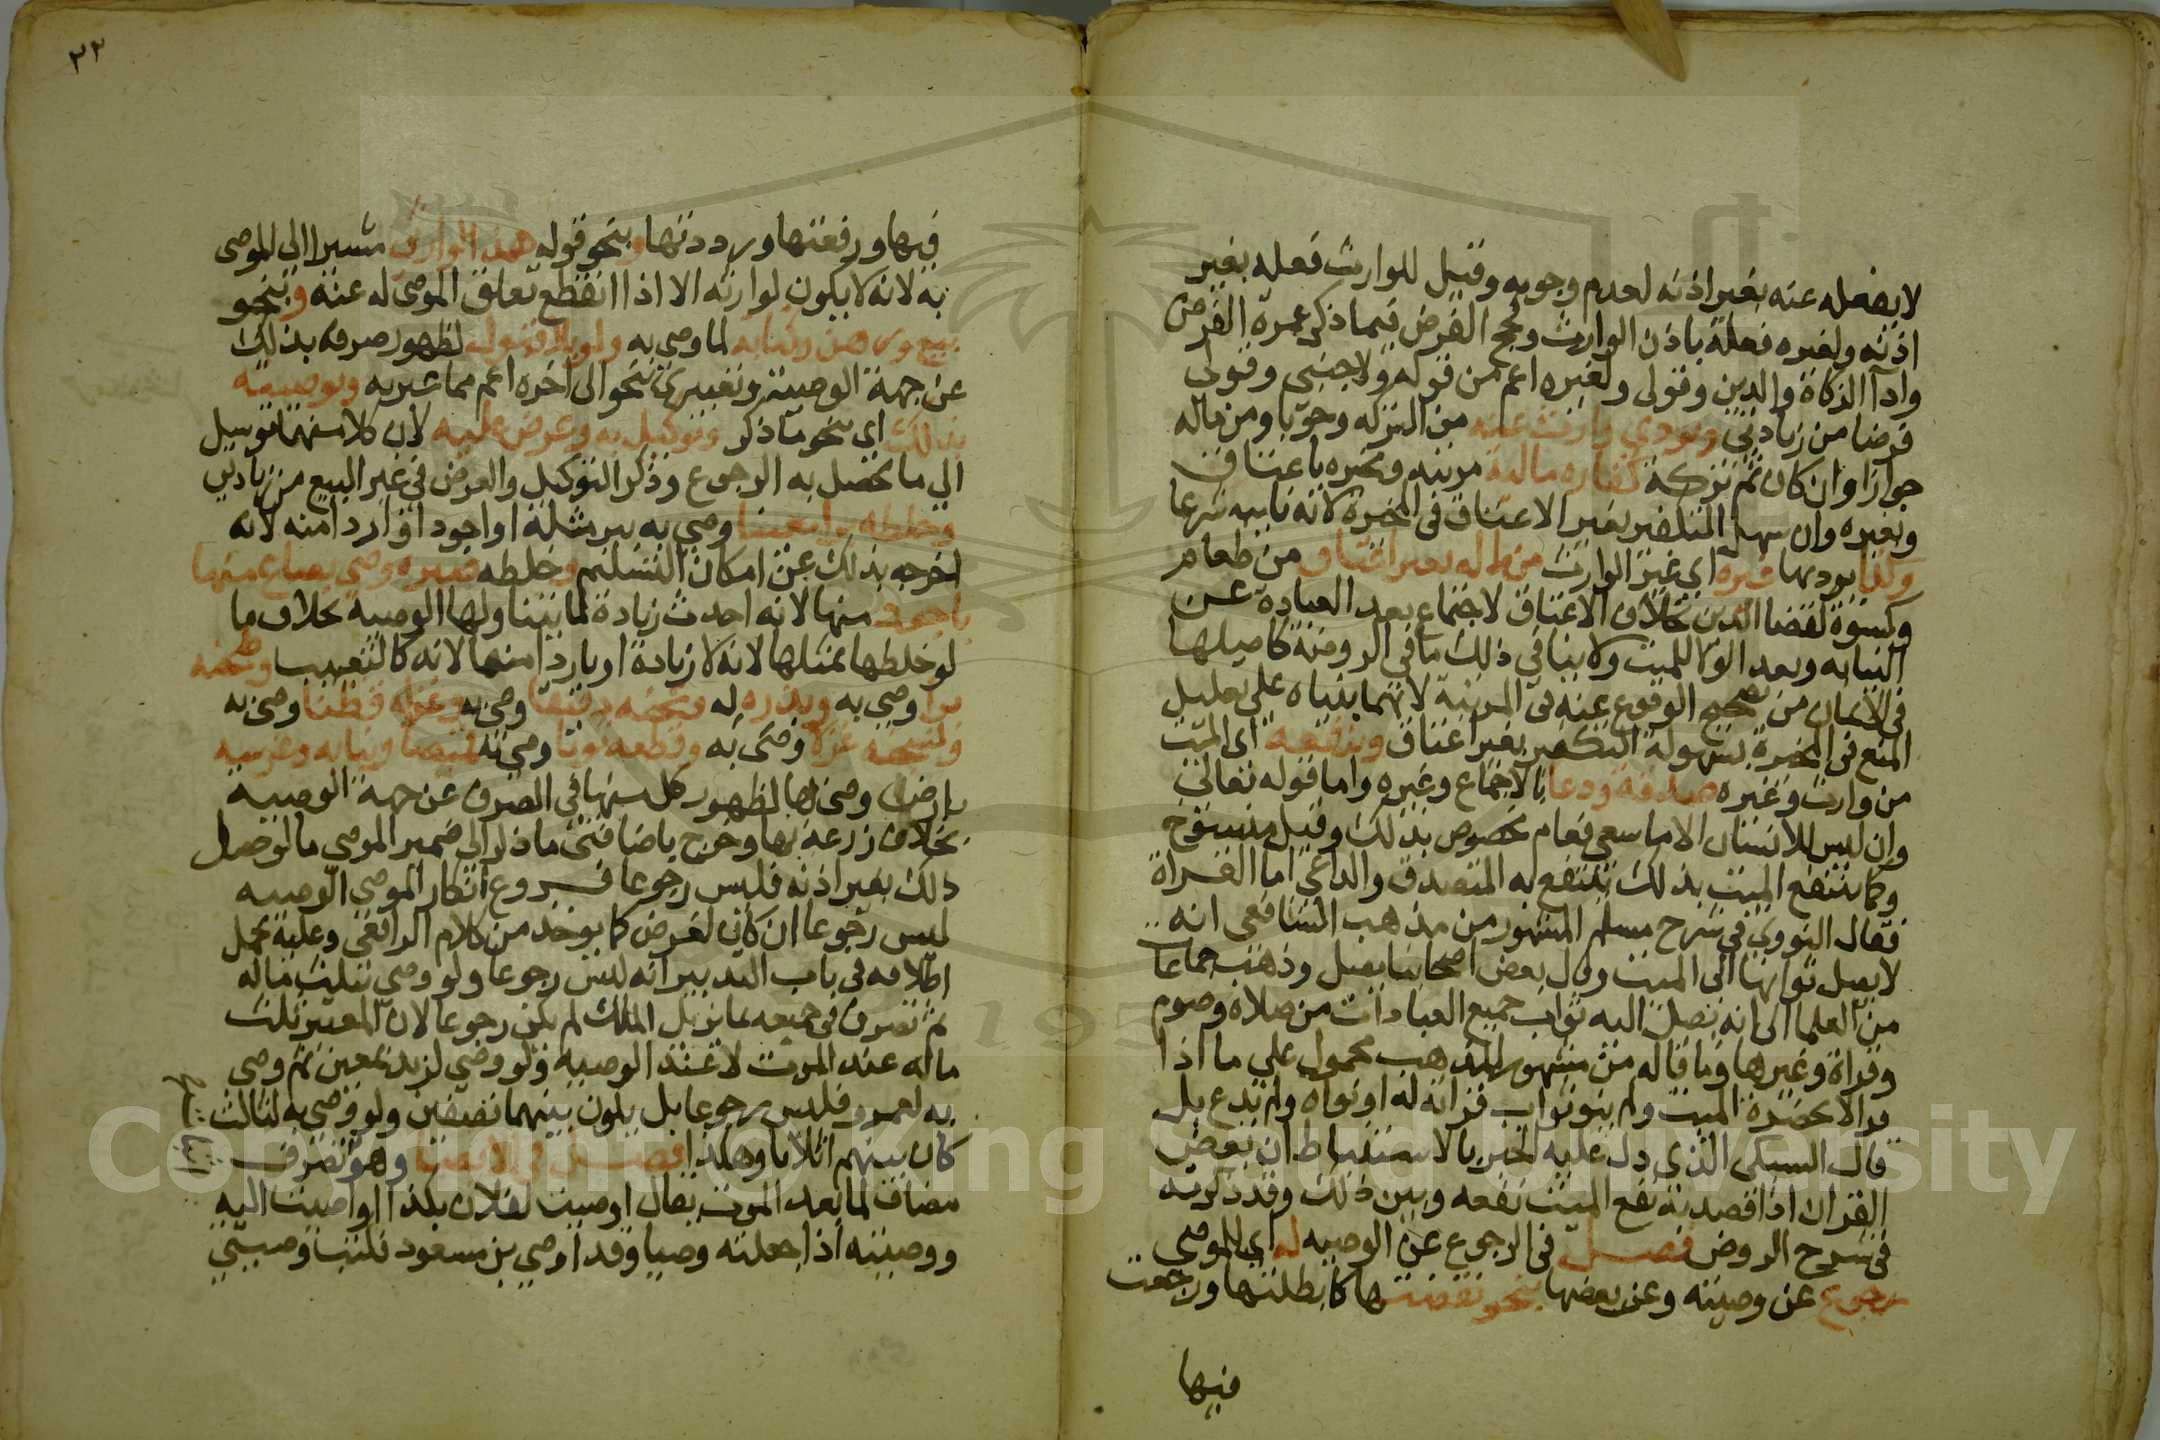 لا يفعله عنه بغير اذنه لعدم وجوبه وقيل للوارث فعله بغير
اذنه ولغيره فعله باذن الوارث وبحج الفرض فيما ذكر عمرة الفرض
واداا الزكاة والدين وقولى ولغيره اعم من قوله ولاجنبي وقولى
فرضا من زيادتى ويودي وارث عنه من التركه وجوبا ومن ماله
جوازا وان كان ثم تركة كفاره ماليه مرتبه ومخيره باعتاق
وبغيره وان سهل التكفير بغير الاعتاق في المخيرة لانه نايبه شرعا
وكذا يوديها غيره اي غير الوارث من ماله بغير اعتاق من طعام
وكسوة لقضا الدين بخلاف الاعتاق لاجتماع بعد العبادة عن
النيابه وبعد الولا للميت ولا ينافي ذلك ما في الروضة كاصلها
في الايمان من تصحيح الوقوع عنه في المرتبة لانهما بنياه على تعليل
المنع في المخيرة بسهولة التكفير بغير اعتاق وينفعه اى الميت
من وارث وغيره صدقة ودعا بالاجماع وغيره واما قوله تعالى
وان ليس للانسان الا ما سعى فعام مخصوص بذلك وقيل منسوخ
وكما ينتفع الميت بذلك ينتفع به المتصدق والداعي اما القراة
فقال النووي في شرح مسلم المشهور من مذهب الشافعى انه
لا يصل ثوابها الى الميت وقال بعض اصحابنا يصل وذهب جماعات
من العلما الى انه يصل اليه ثواب جميع العبادات من صلاة وصوم
وقراة وغيرها وما قاله من مشهور المذهب محمول على ما اذا
قرا لا بحضرة الميت ولم ينو ثواب قراته له او نواه ولم يدع بل
قال السبكى الذي دل عليه الخبر بالاستنباط ان بعض
القران اذا قصد به نفع الميت نفعه وبين ذلك وقد ذكرته
في شرح الروض فصل في الرجوع عن الوصيه له اى للموصى
رجوع عن وصيته وعن بعضها بنحو نقضتها كابطلتها ورجعت
فيها
٣٢
فيها ورفعتها ورددتها وبنحو قوله هذا لوارثى مشيرا الى الموصى
به لانه لا يكون لوارثه الا اذا انقطع تعلق الموصى له عنه وبنحو
بيع ورهن وكتابه لما وصى به ولو بلا قبول لظهور صرفه بذلك
عن جهة الوصية وتعبيرى بنحو الى اخره اعم مما عبر به وبوصيته
بذلك اى بنحو ما ذكر وتوكيل به وعرض عليه لان كلا منهما توسل
الى ما يحصل به الرجوع وذكر التوكيل والعرض في غير البيع من زيادتى
وخلطه برا معينا وصى به ببر مثله او اجود او اردا منه لانه
اخرجه بذلك عن امكان التسليم وخلطه صبره وصى بصاع منها
باجود منها لانه احدث زيادة لم يتناولها الوصيه بخلاف ما
لو خلطها بمثلها لانه لا زيادة او باردا منها لانه كالتعييب وطحنه
برا وصى به وبذره له وعجنه دقيقا وصى به وغزله قطنا وصى به
ونسجه غزلا وصى به وقطعه ثوبا وصى به قميصا وبنايه وغرسه
بارض وصى بها لظهور كل منها في الصرف عن جهة الوصيه
بخلاف زرعه بها وخرج باضافتى ما ذكر الى ضمير الموصى ما لو حصل
ذلك بغير اذنه فليس رجوعا فروع انكار الموصى الوصيه
ليس رجوعا ان كان لغرض كما يوخذ من كلام الرافعى وعليه يحمل
اطلاقه في باب التدبير انه ليس رجوعا ولو وصى بثلث ماله
ثم تصرف في جميعه بما يزيل الملك لم يكن رجوعا لان المعتبر ثلث
ماله عند الموت لا عند الوصيه ولو وصى لزيد بمعين ثم وصى
به لعمرو فليس رجوعا بل يكون بينهما نصفين ولو وصى به لثالث
كان بينهم اثلاثا وهكذا فصل في الايصا وهو تصرف
مضاف لما بعد الموت يقال اوصيت لفلان بكذا واوصيت اليه
ووصيته اذا جعلته وصيا وقد اوصى بن مسعود فكتب وصيتى